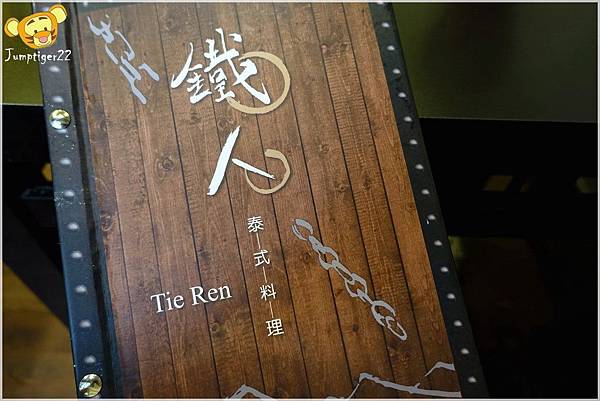 Jumptiger22
鐵人
泰式料理
Tie Ren